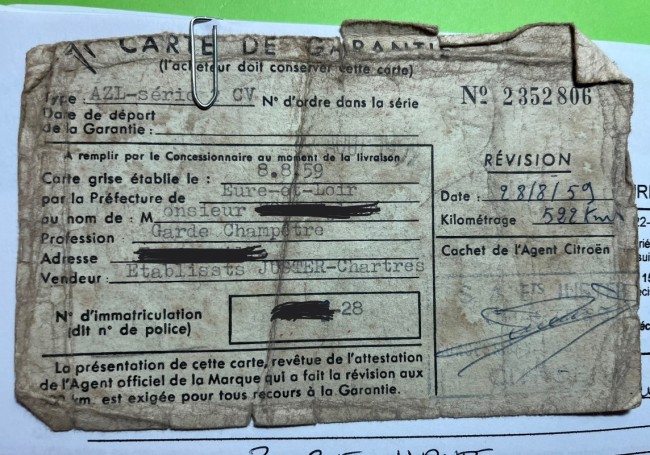 CARTE DE GARANTIE
(l'acheteur doit conserver cette carte)
Type : AZL-série CV N° d'ordre dans la série Nº 2352806
Date de départ
de la Garantie :
A remplir par le Concessionnaire au moment de la livraison
Carte grise établie le : 8.8.59
par la Préfecture de Eure-et-Loir
au nom de : Monsieur
Profession Garde Champêtre
Adresse
Vendeur : Etablisats JUSTER-Chartres
N° d'immatriculation
(dit n° de police)
-28
La présentation de cette carte, revêtue de l'attestation
de l'Agent officiel de la Marque qui a fait la révision aux
km. est exigée pour tous recours à la Garantie.
RÉVISION
Date : 28/8/59
Kilométrage 522 Km
Cachet de l'Agent Citroën
ETS JUSTER